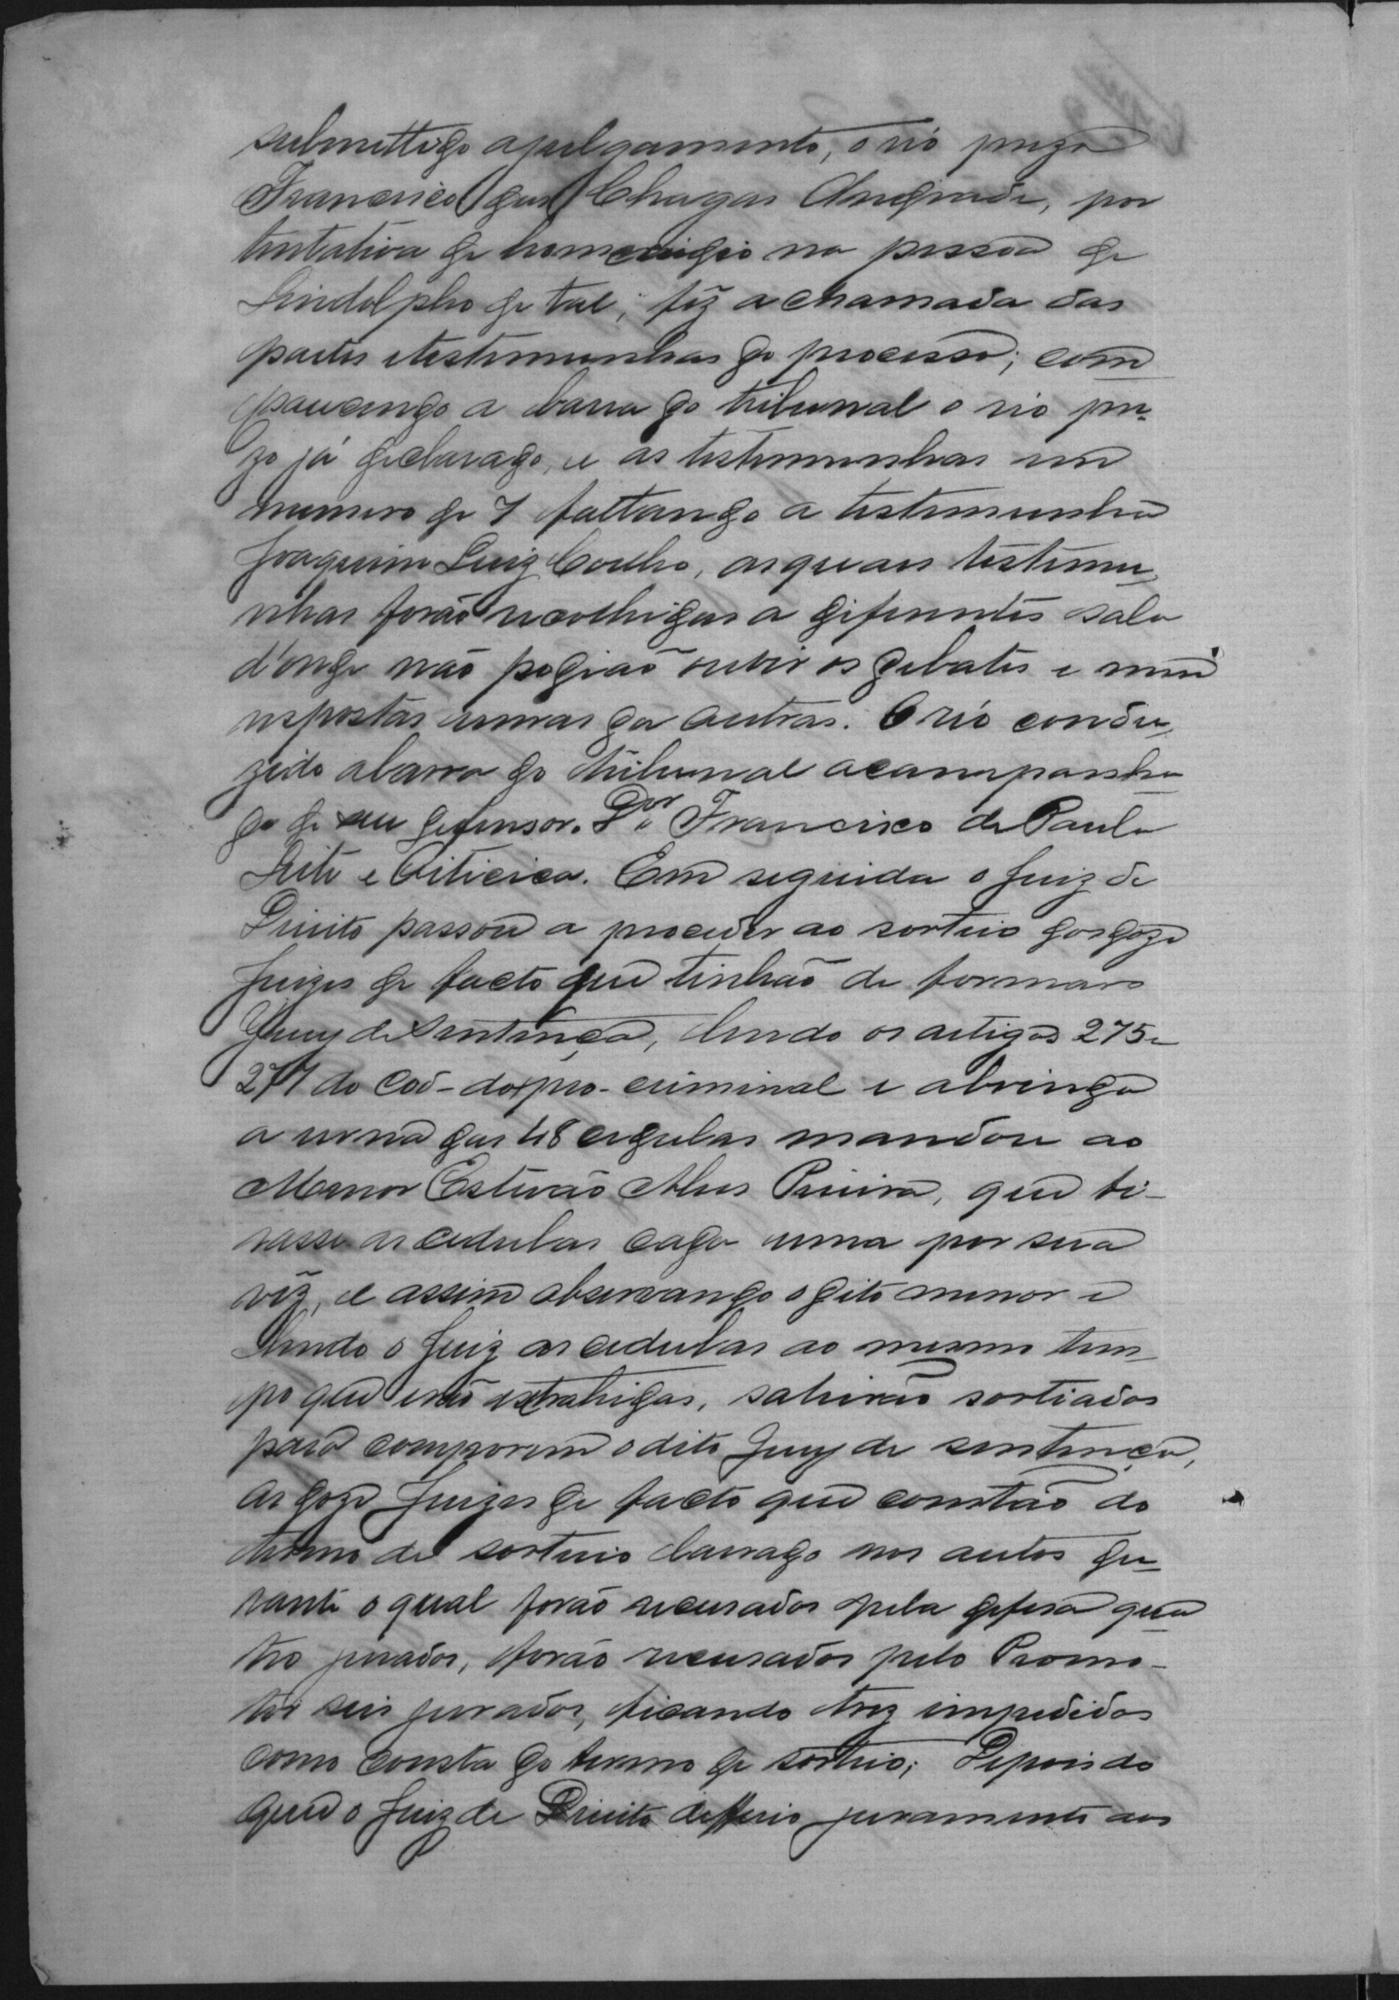 submettido a julgamento, o réo prezo
Francisco das Chagas Andrade, por
tentativa de homecidio na pessoa de
Lindolpho de tal; fez a chamada das
partes e testemunhas do processo; com
parecendo a barra do tribunal o réo pre-
zo já declarado, e as testemunhas em
numero de 7 faltando a testemunha
Joaquim Luiz Coelho, as quaes testemu-
nhas forão recolhidas a diferentes sala
d'onde não podião ouvir os debates e nem
respostas umas das outras. O réo condu-
zido a barra do tribunal acompanha
do de seu defensor. Dor. Francisco de Paula
Leite e Oiticica. Em seguida o Juiz de
Direito passou a proceder ao sorteio dos doze
Juizes de facto que tinhão de formar o
Jury de Sentença, lendo os artigos 275 e
277 do Cod- do pro- criminal e abrindo
a urna das 48 cedulas mandou ao
Menor Estevão Alves Pereira, que ti-
rasse as cedulas cada uma por sua
vêz, e assim observando o dito menor e
lendo o Juiz as cedulas ao mesmo tem-
po que erão extrahidas, sahirão sortiados
para comporem o dito Jury de sentença,
os doze Juizes de facto que constão do
termo de sorteio lavrado nos autos du-
rante o qual forão recusados pela defesa qua
tro jurados, forão recusados pelo Promo-
tor seis jurados, ficando trez impedidos
como consta do termo de sorteio; Depois do
que o Juiz de Direito defferio juramento aos